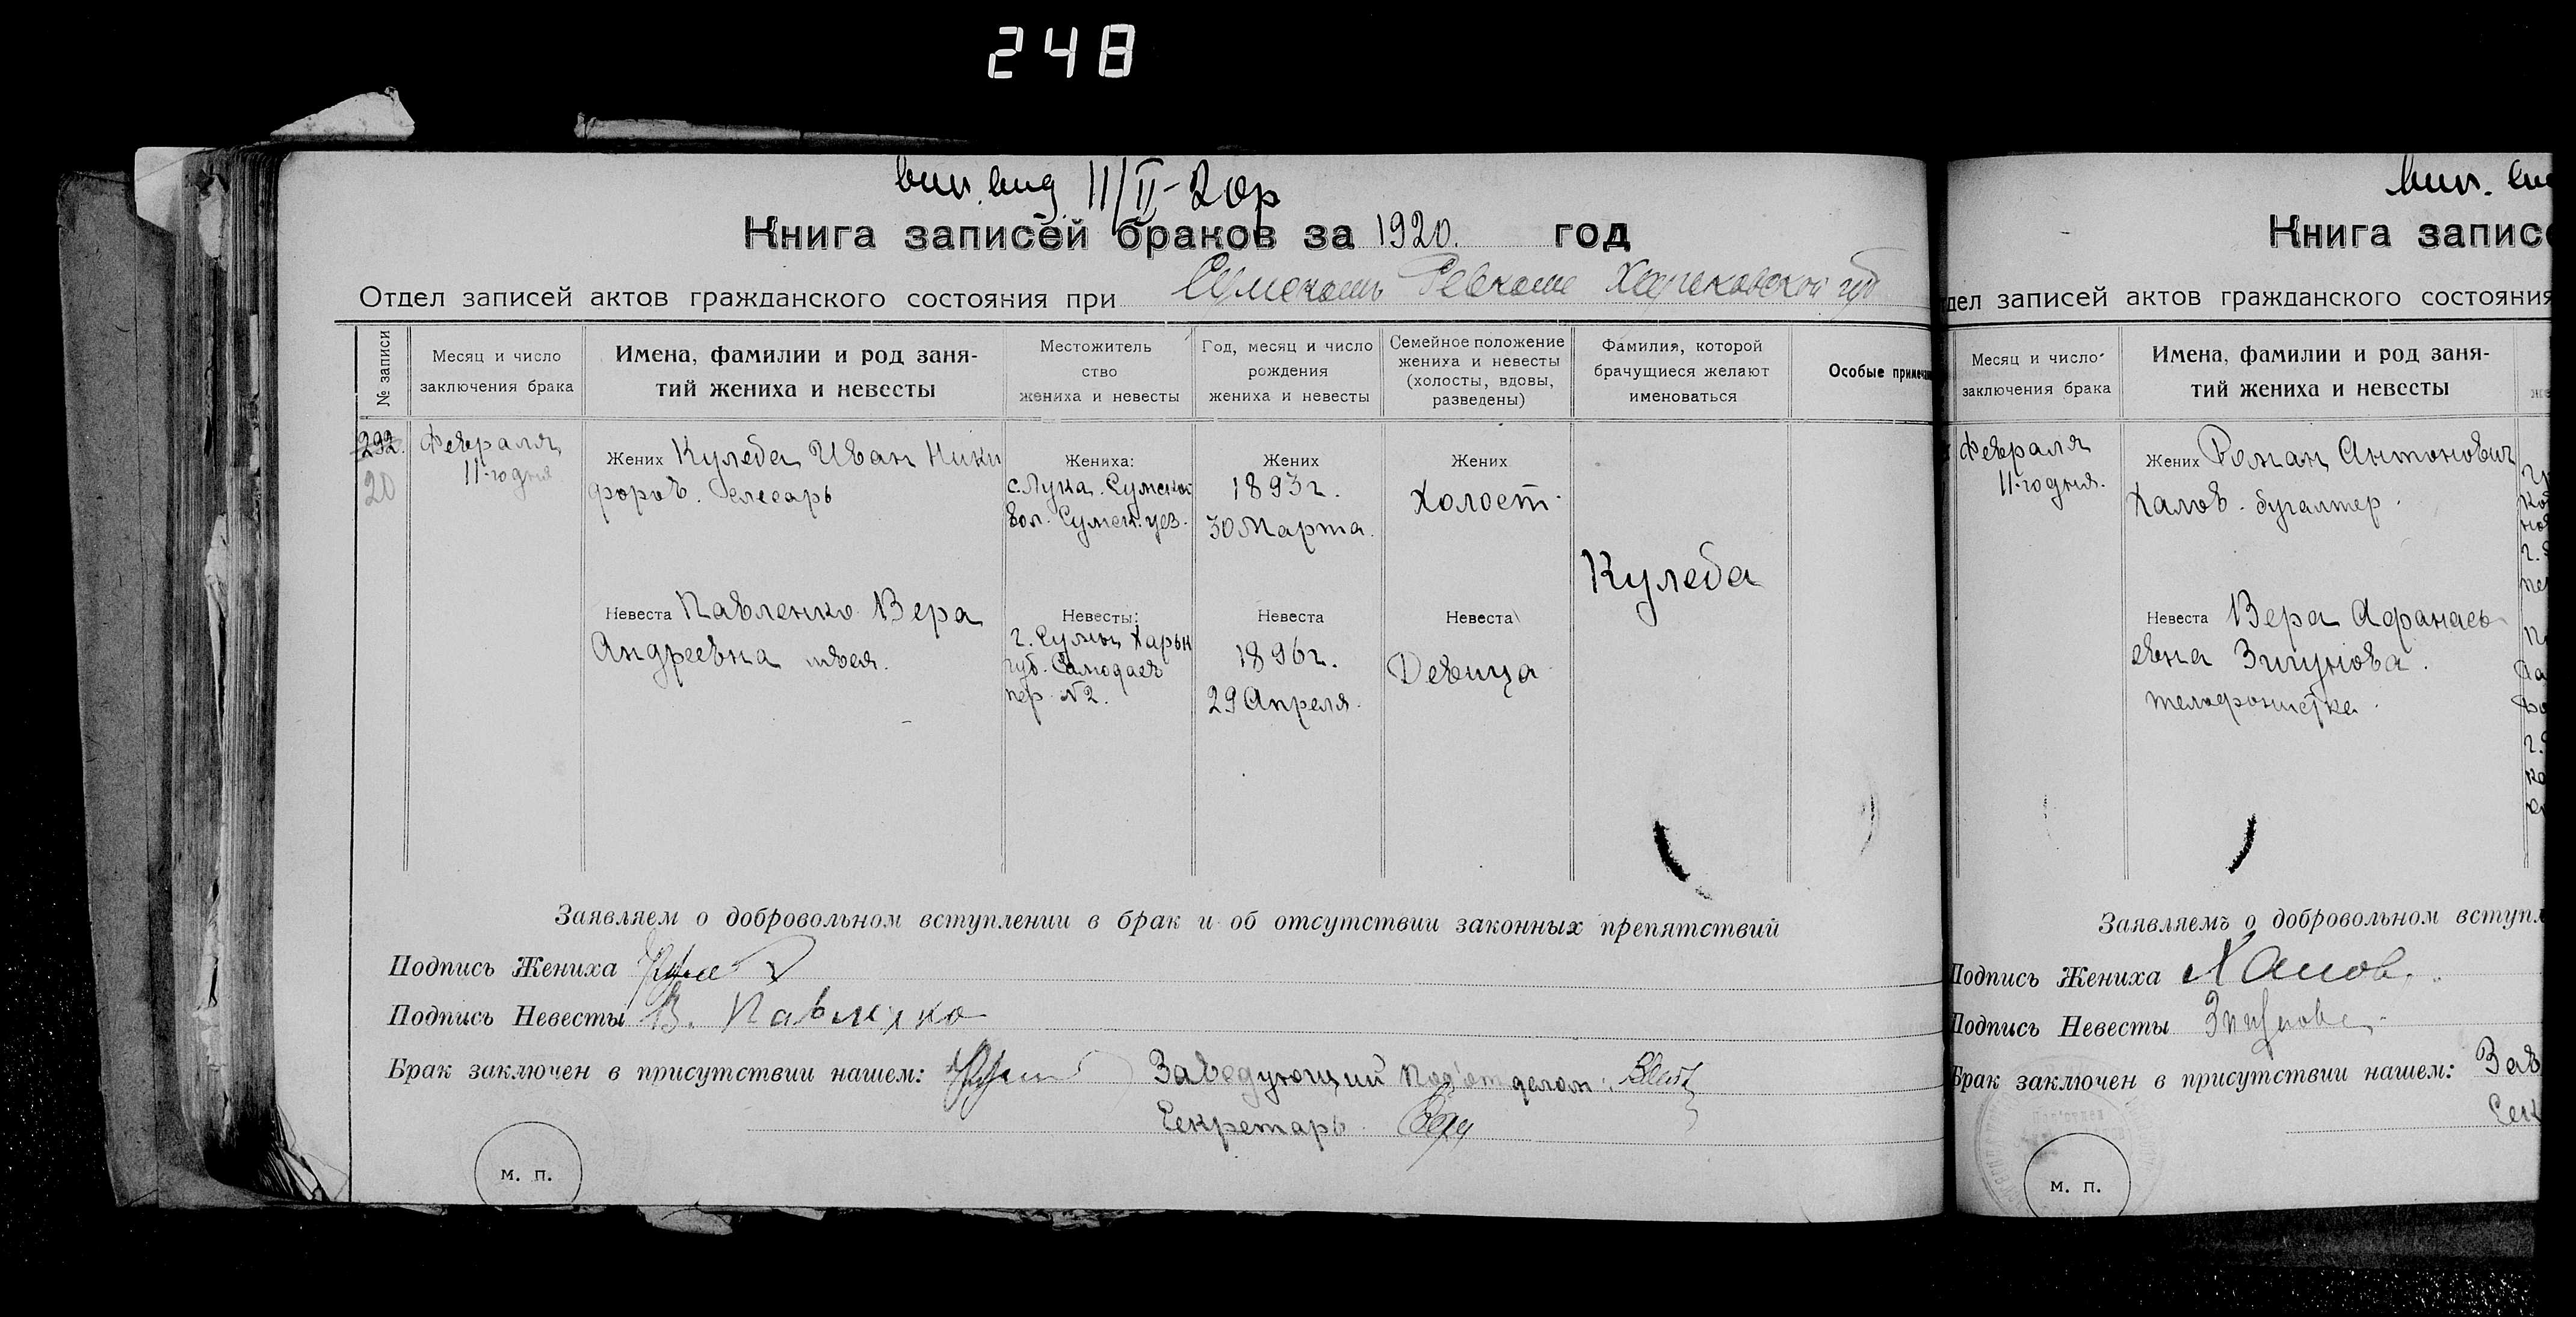 248
вип. вид 11/II-20р
Книга записей браков за 1920. год
Отдел записей актов гражданского состояния при Сумском Ревкоме Харьковской губ.
№ записи
Месяц и число
заключения брака
Имена, фамилии и род заня-
тий жениха и невесты
Местожитель
ство
жениха и невесты
Год, месяц и число
рождения
жениха и невесты
Семейное положение
жениха и невесты
(холосты, вдовы,
разведены)
Фамилия, которой
брачущиеся желают
именоваться
Особые примечан
292.
20
Февраля
11-го дня
Жених Кулеба Иван Ники
форов. Слесарь
Жениха:
с. Лука. Сумской
вол. Сумск. уез.
Жених
1893 г.
30 Марта.
Жених
Холост.
Кулеба
Невеста Павленко Вера
Андреевна швея.
Невесты:
г. Сумы Харьк
губ.
пер. №2.
Невеста
1896 г.
29 Апреля.
Невеста
Девица
Заявляем о добровольном вступлении в брак и об отсутствии законных препятствий
Подпись Жениха
Подпись Невесты В. Павленко
Брак заключен в присутствии нашем: Заведующий Под'отделом:
Секретарь.
м. п.
вип. ви
Книга записе
дел записей актов гражданского состояния
Месяц и число
заключения брака
Имена, фамилии и род заня-
тий жениха и невесты
Февраля
11-го дня.
Жених Роман Антонович
Халов. бугалтер.
Невеста Вера Афанась
евна
телефонистка.
Заявляемъ о добровольном вступл
Подпись Жениха Халов.
Подпись Невесты
Брак заключен в присутствии нашем: Зав
Сек
м. п.